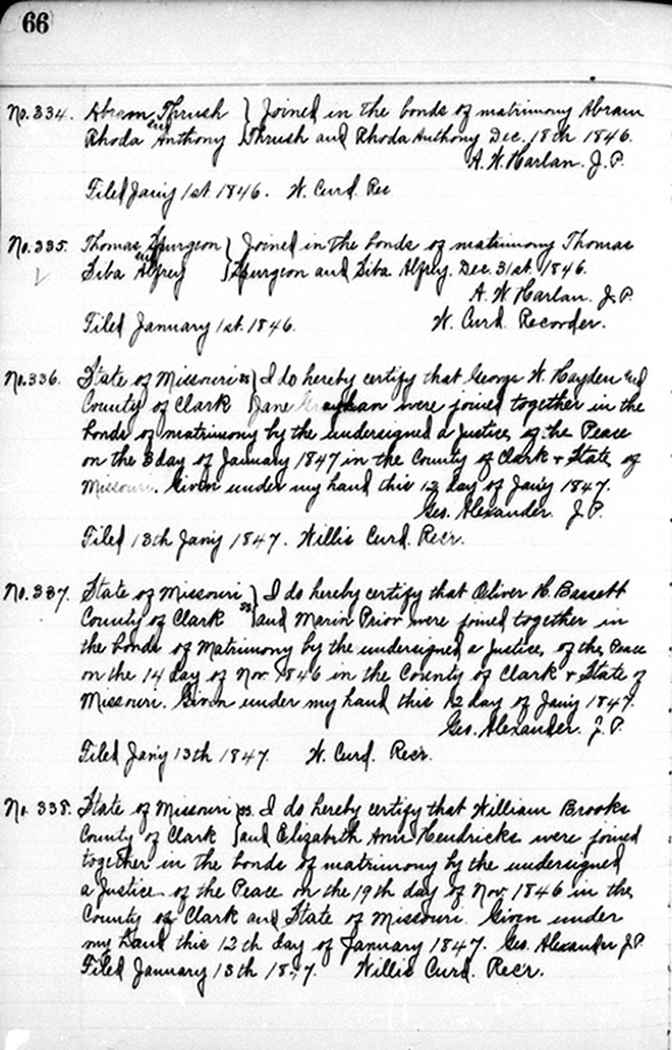 66
No. 334. Abram Thrush } Joined in the bonds of matrimony Abram
and
Rhoda Anthony Thrush and Rhoda Anthony Dec. 18th 1846.
A. W. Harlan. J. P.
Filed Jan'y 1st. 1846. W. Curd. Rec
No. 335. Thomas Spurgeon } Joined in the bonds of matrimony Thomas
and
Siba Alfrey } Spurgeon and Siba Alfrey. Dec. 31st. 1846.
A. W Harlan. J. P.
Filed January 1st. 1846. W. Curd. Recorder.
No. 336. State of Missouri ss } I do hereby certify that George W. Hayden and
County of Clark } Jane were joined together in the
bonds of matrimony by the undersigned a Justice of the Peace
on the 3 day of January 1847 in the County of Clark & State of
Missouri. Given under my hand this 12 day of Jan'y 1847.
Geo. Alexander. J. P.
Filed 13th Jan'y 1847. Willis Curd. Rec'r.
No. 337. State of Missouri } I do hereby certify that Oliver H. Bassett
County of Clark ss } and Maria Prior were joined together in
the bonds of Matrimony by the undersigned a Justice of the Peace
on the 14 day of Nov. 1846 in the County of Clark & State of
Missouri. Given under my hand this 12 day of Jan'y 1847.
Geo. Alexander. J. P.
Filed Jan'y 13th 1847. W. Curd. Rec'r.
No. 338. State of Missouri ss. I do hereby certify that William Brooks
County of Clark } and Elizabeth Ann Hendricks were joined
together in the bonds of matrimony by the undersigned
a Justice of the Peace on the 19th day of Nov. 1846 in the
County of Clark and State of Missouri. Given under
my hand this 12th day of January 1847. Geo. Alexander J. P.
Filed January 13th 18 7. Willis Curd. Rec'r.